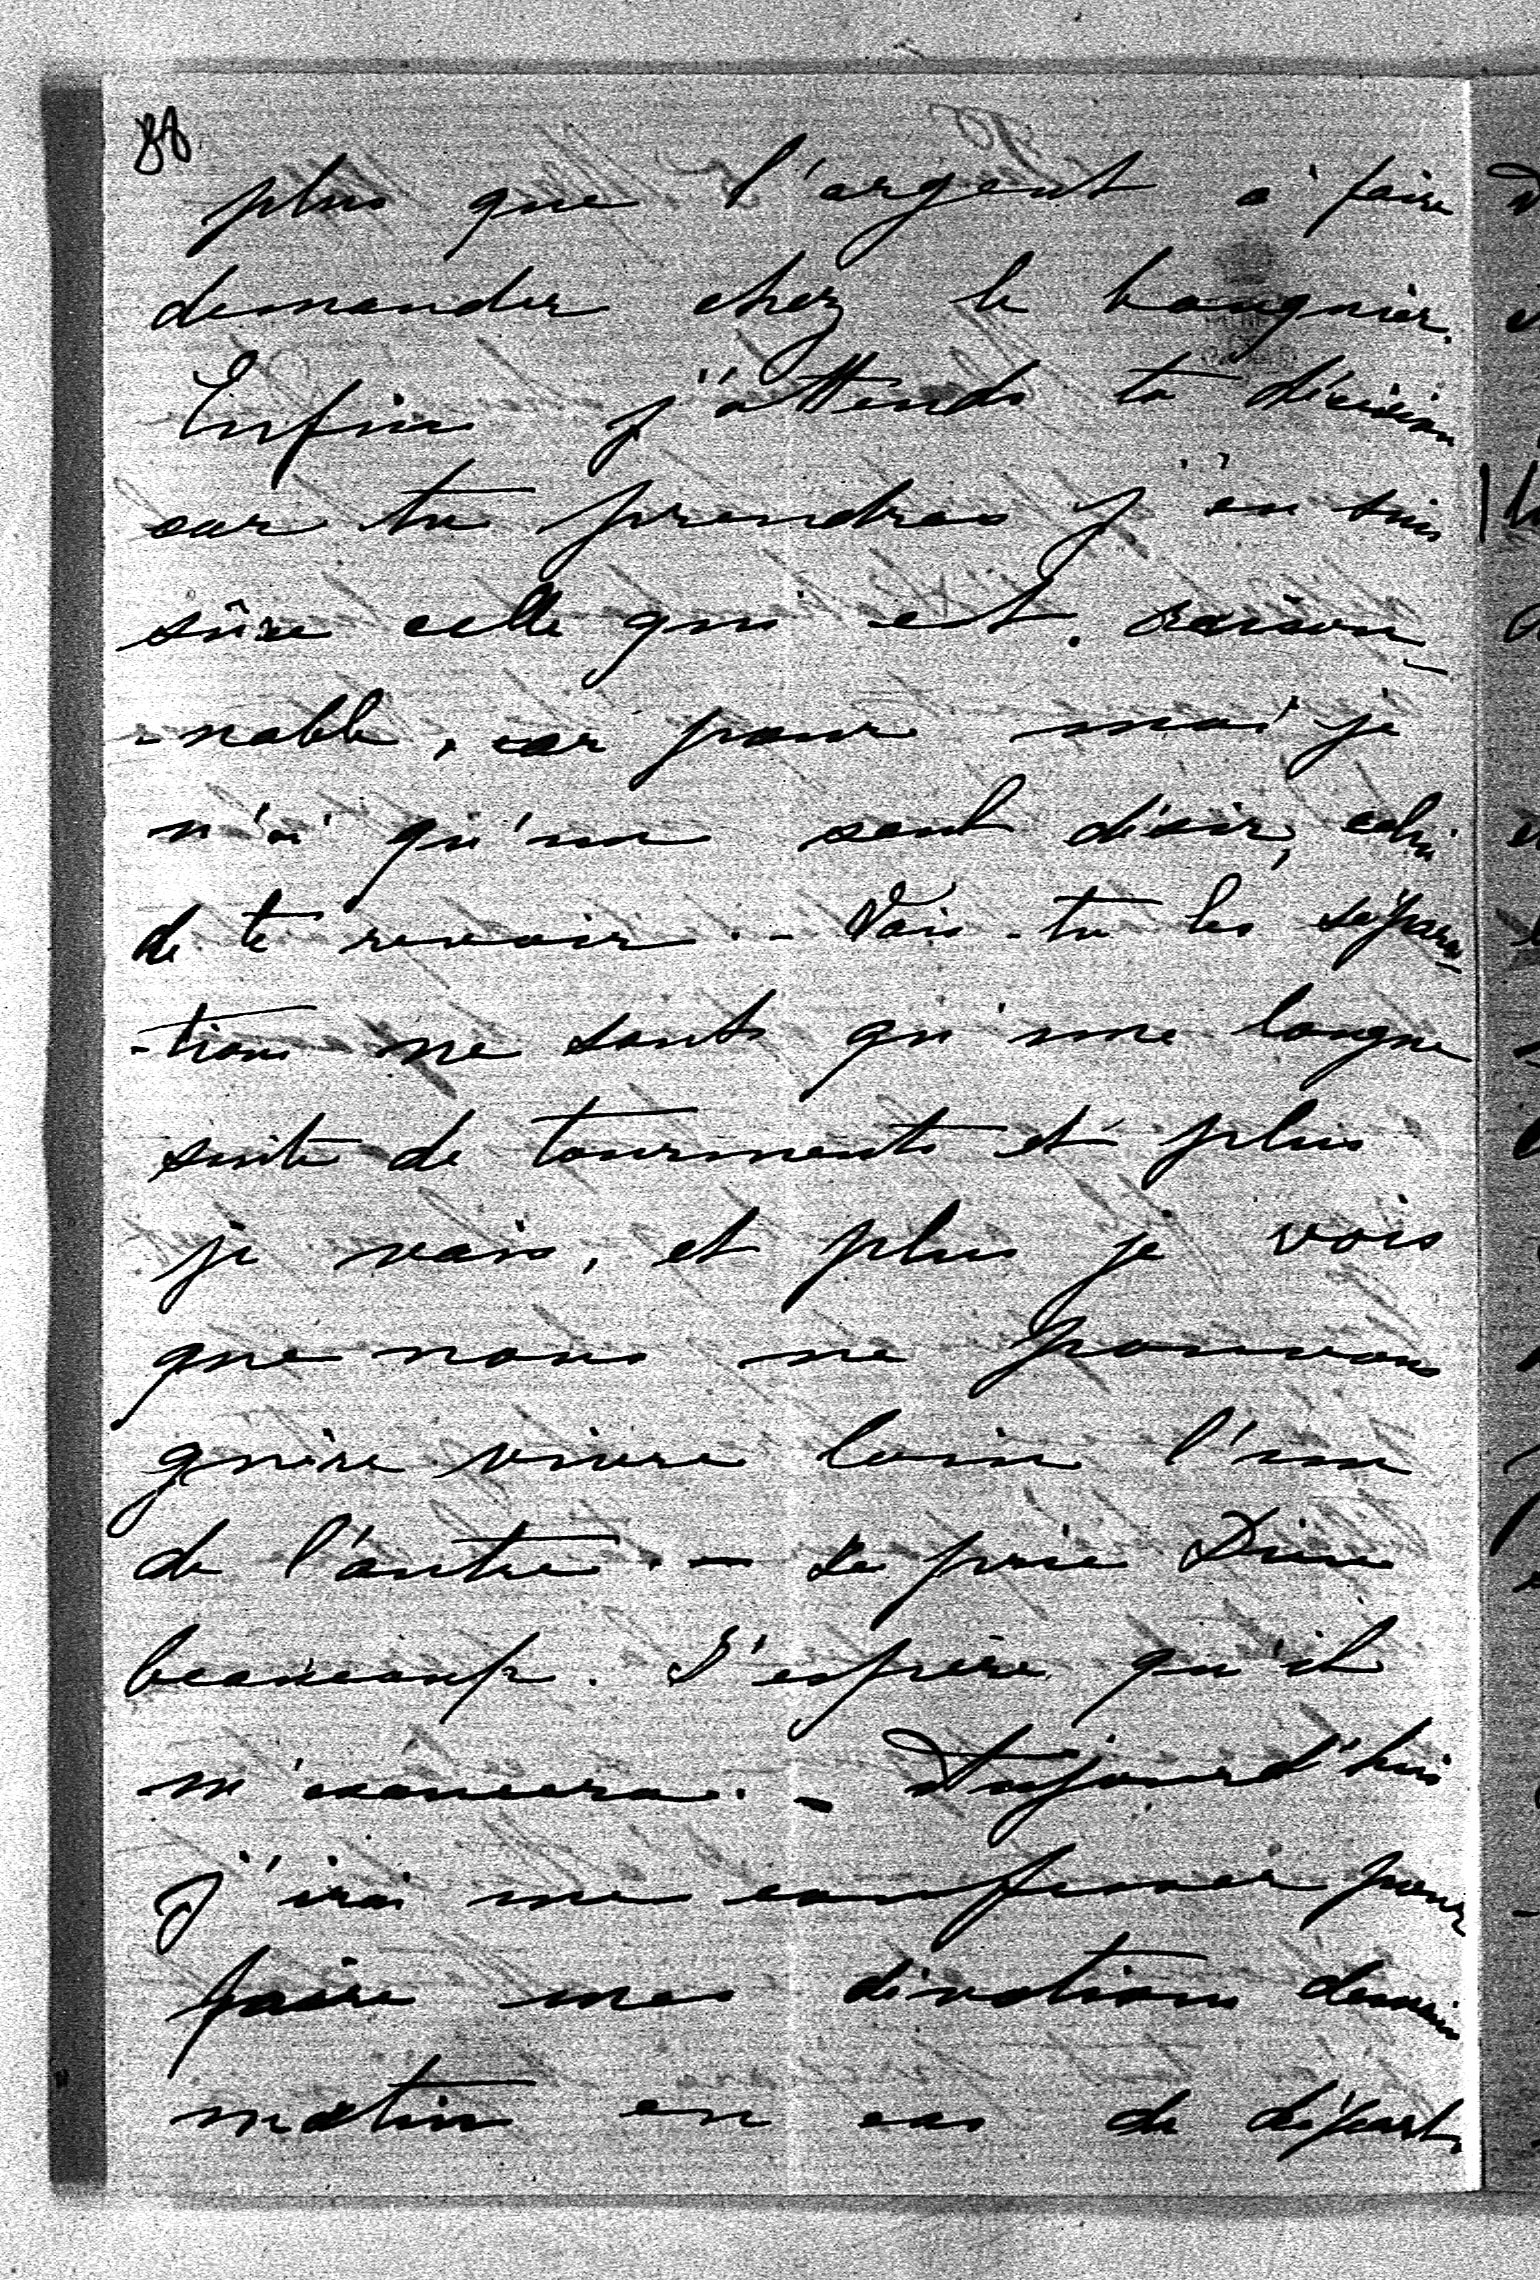 88
plus que l'argent à faire
demander chez le banquier.
Enfin j'attends ta décision
car tu prendras j'en suis
sûre celle qui est. raison-
-nable, car pour moi je
n'ai qu'un seul désir, celui
de te revoir. - Vois-tu les sépara-
-tions ne sont qu'une longue
suite de tourments et plus
je vais, et plus je vois
que nous ne pouvons
guère vivre loin l'un
de l'autre. - Je prie Dieu
beaucoup. J'espère qu'il
m'exaucera. - Aujourd'hui
j'irai me confesser pour
faire mes dévotions demain
matin en cas de départ.